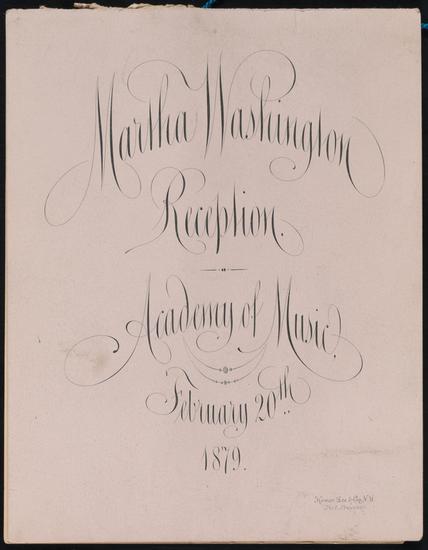 Martha Washington
Reception.
Academy of Music.
February 20th
1879.